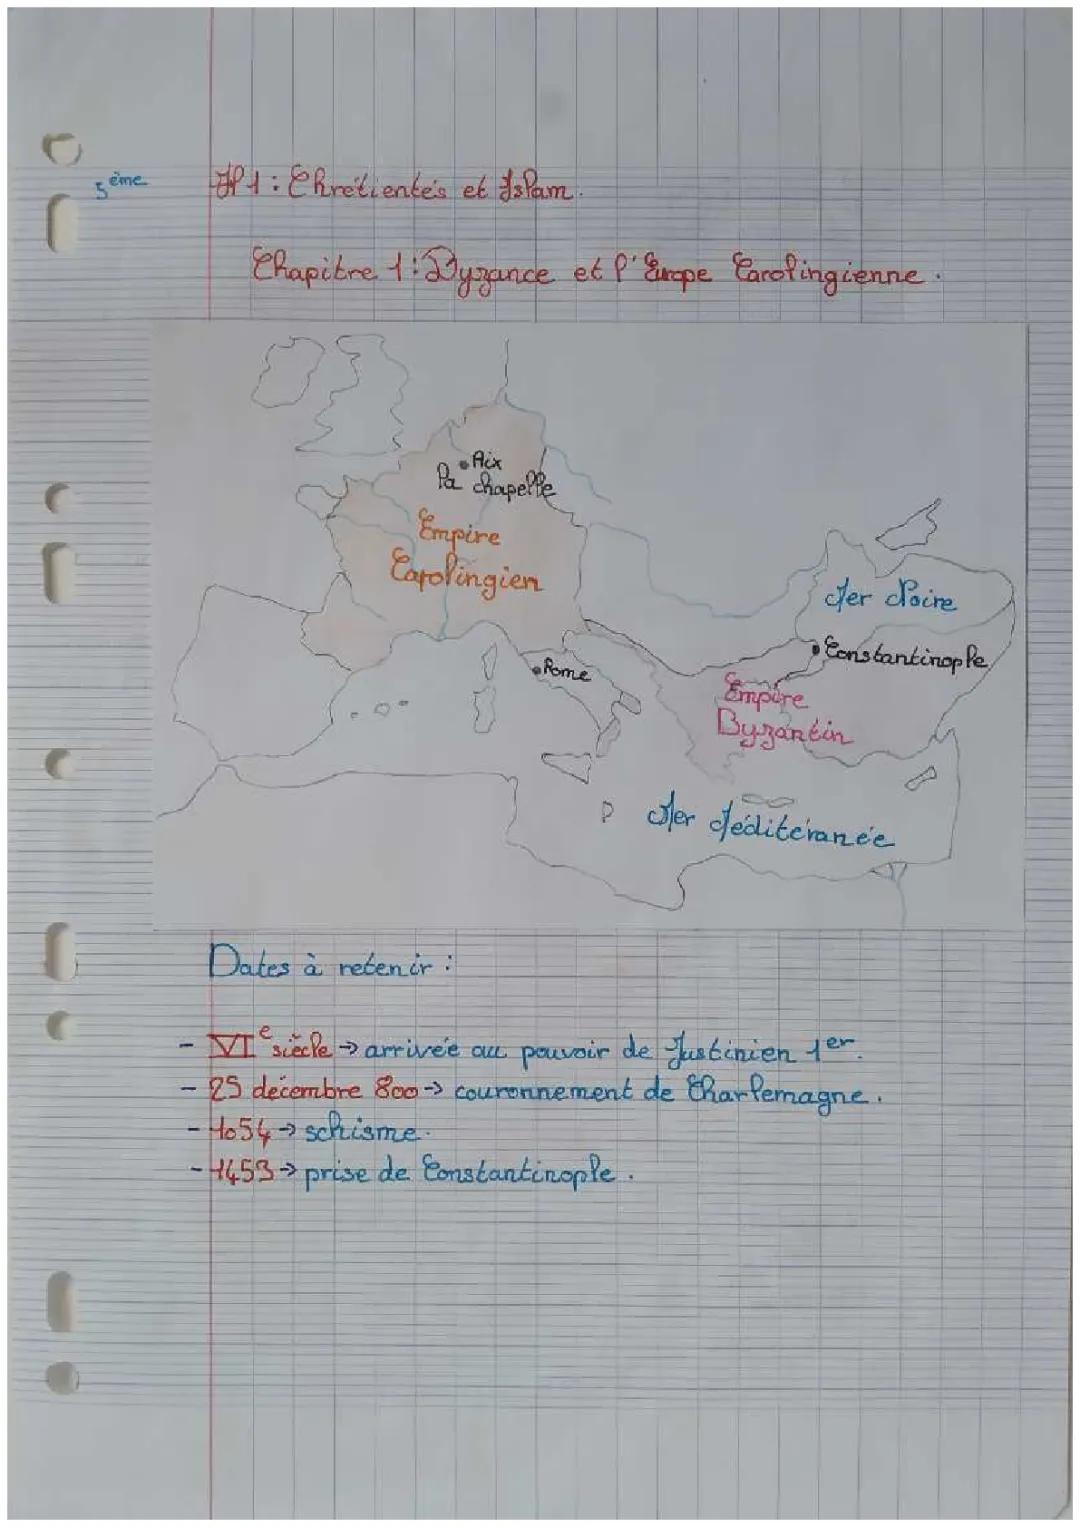 5ème
H1 : Chrétientés et Islam.
Chapitre 1 : Byzance et l'Europe Carolingienne.
Aix
la chapelle
Empire
Carolingien
Mer Noire
Constantinople
Rome
Empire
Byzantin
Mer Méditéranée
Dates à retenir :
- VIe siècle → arrivée au pouvoir de Justinien 1er.
- 25 décembre 800 → couronnement de Charlemagne.
- 1054 → schisme.
- 1453 → prise de Constantinople.